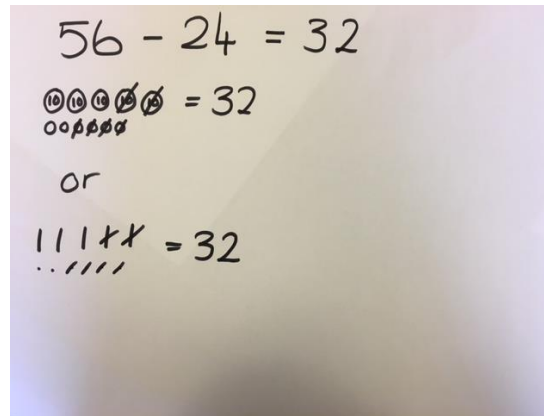 56 - 24 = 32
10 10 10 10 10 = 32
or
= 32